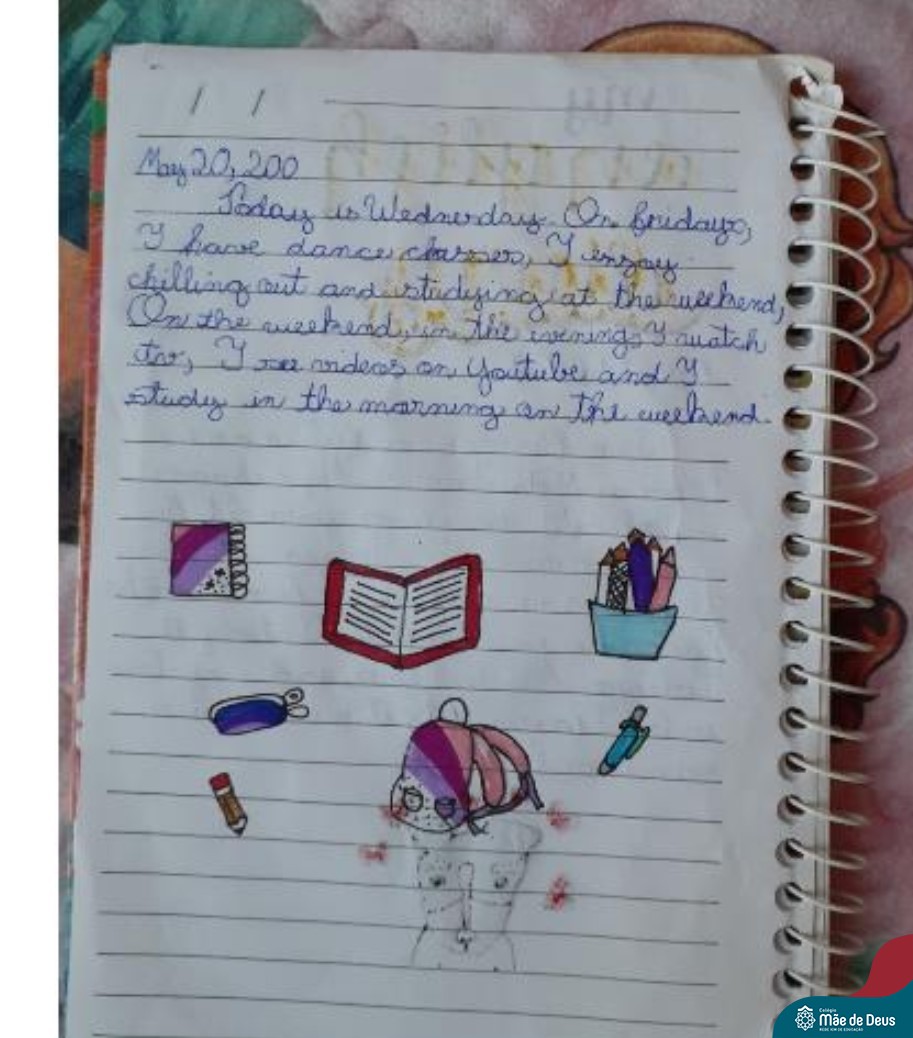 / /
May 20, 200
Today is Wednesday. On fridays,
I have dance classes, I enjoy
chilling out and studying at the weekend,
On the weekend, in the evenings I watch
tv, I see videos on Youtube and I
study in the morning on the weekend.
Colégio
Mãe de Deus